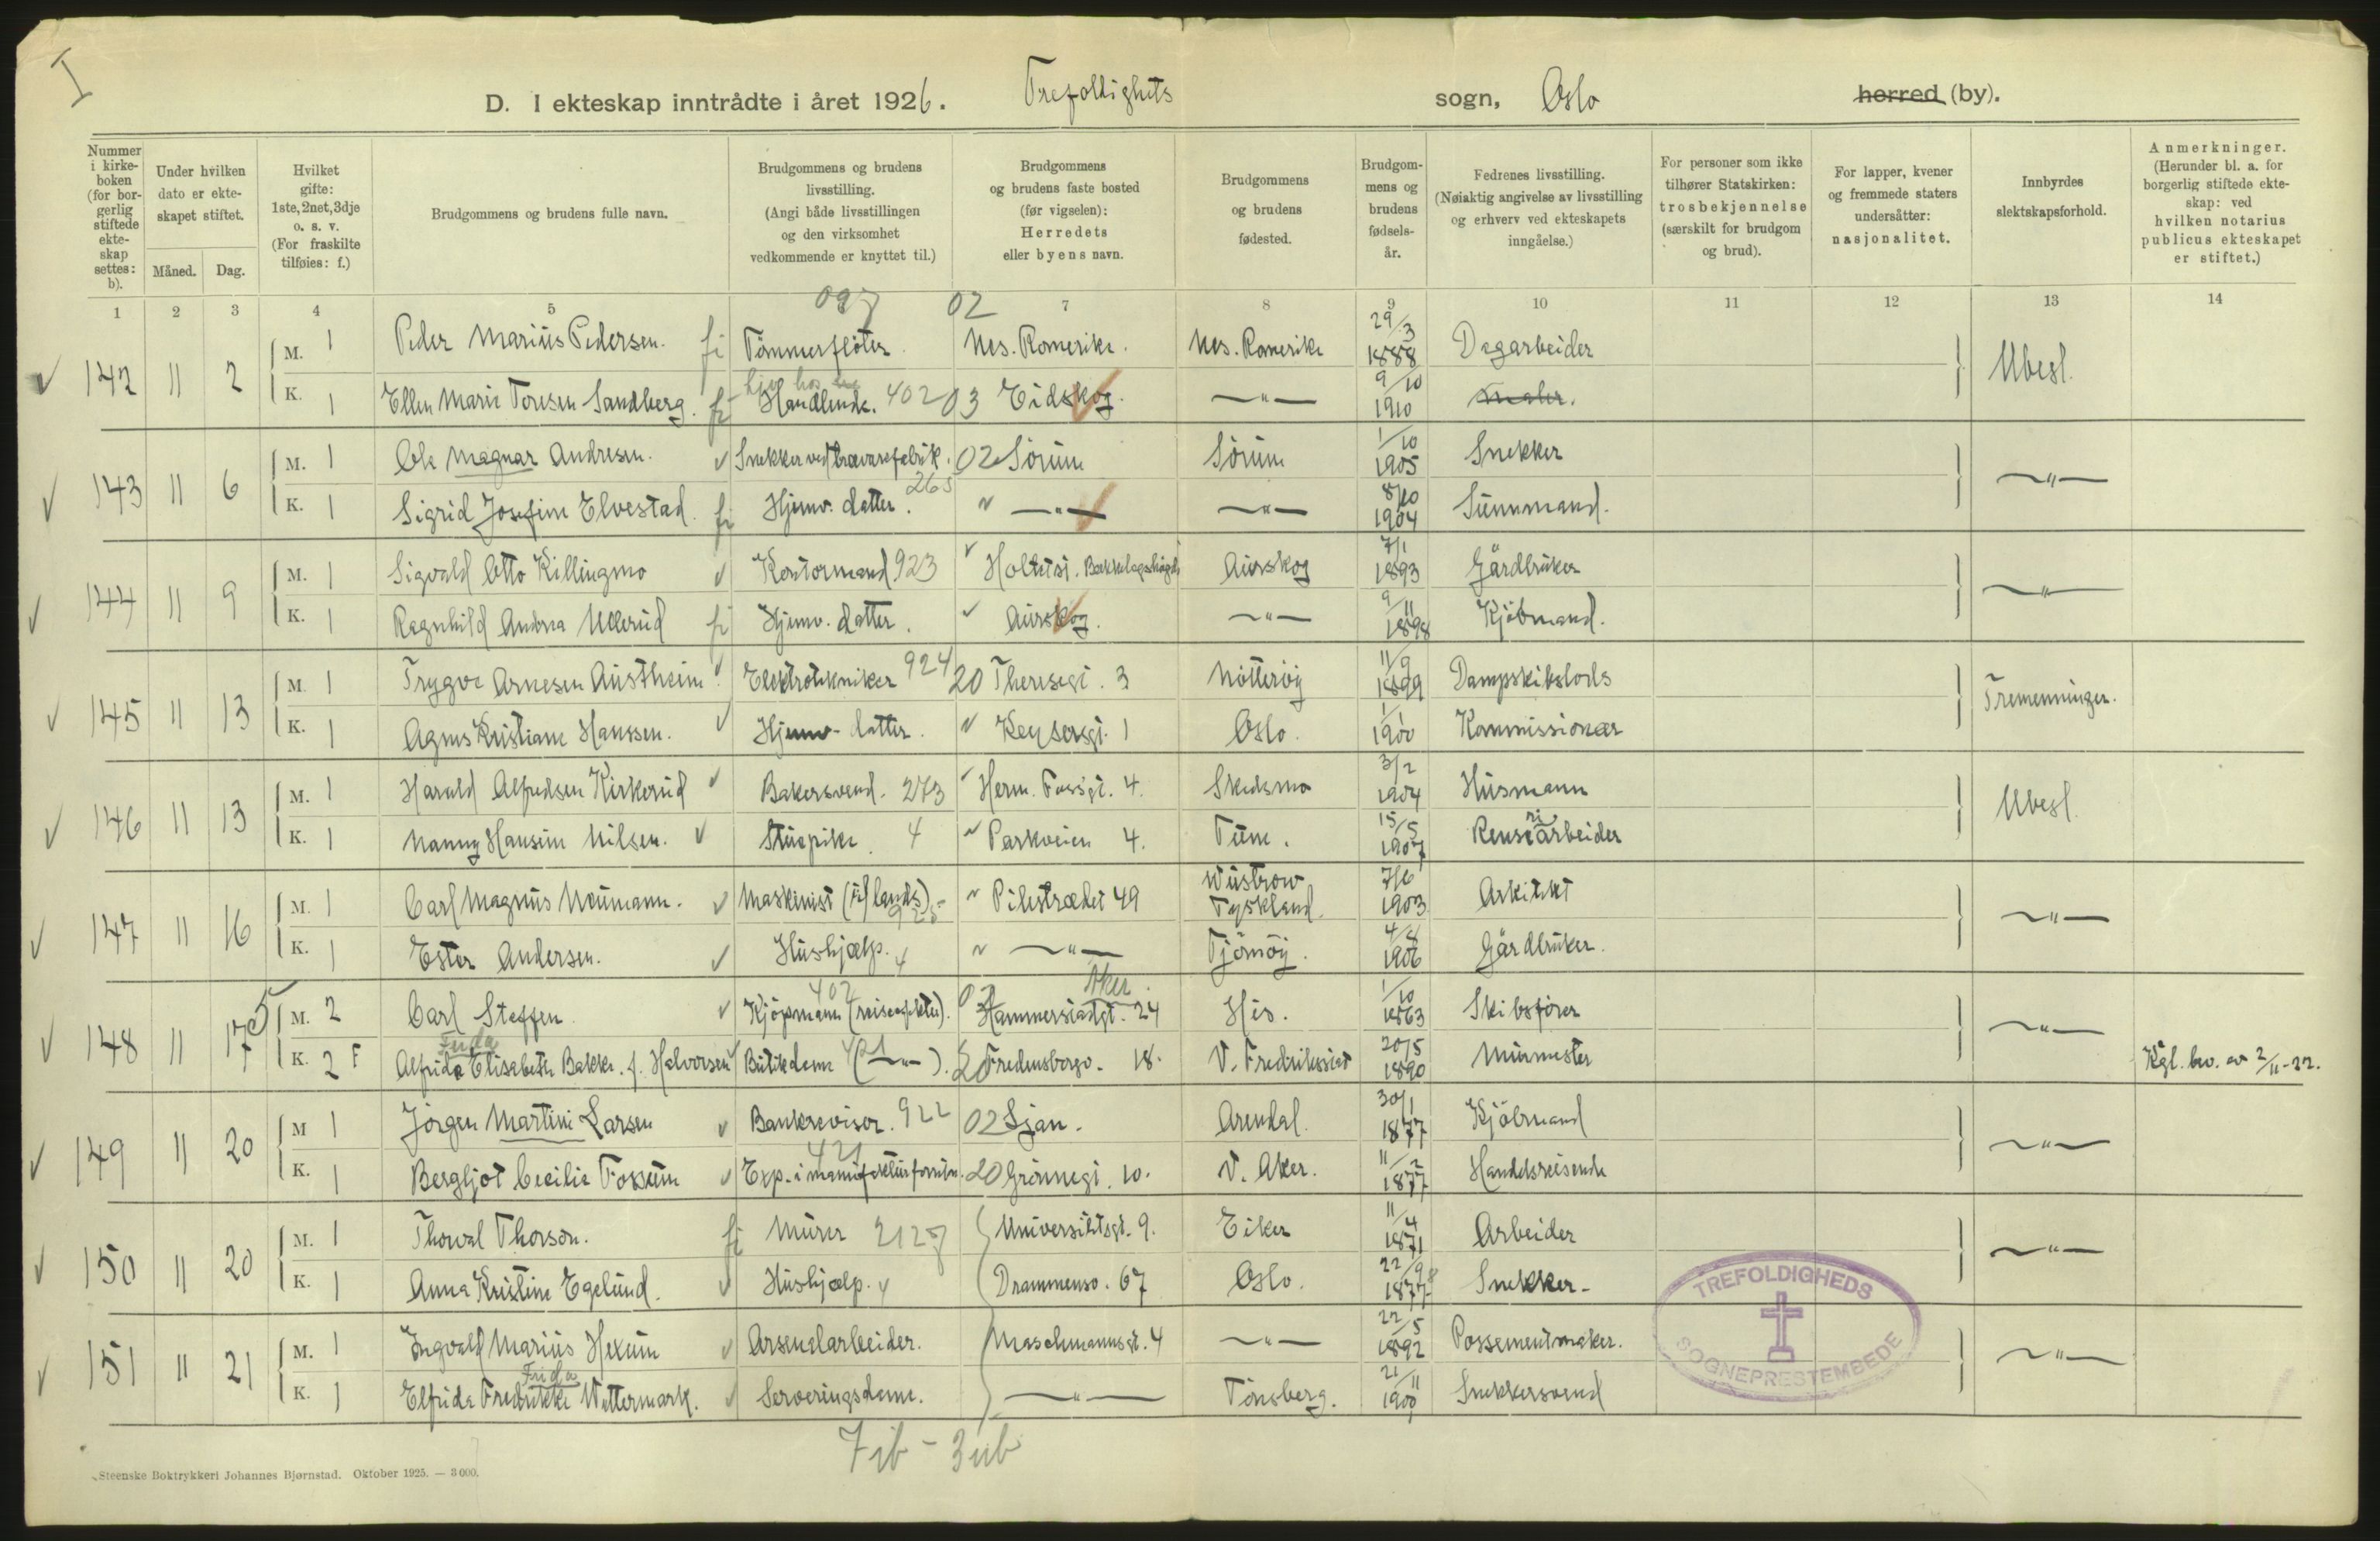 I
D. I ekteskap inntrådte i året 1926. Trefoldighets sogn, Oslo herred (by).
Nummer i kirkeboken (for borgerlig stiftede ekteskap settes: b).
Under hvilken dato er ekteskapet stiftet.
Måned. Dag.
Hvilket gifte: 1ste, 2net, 3dje o. s. v. (For fraskilte tilføies: f.)
Brudgommens og brudens fulle navn.
Brudgommens og brudens livsstilling. (Angi både livsstillingen og den virksomhet vedkommende er knyttet til.)
Brudgommens og brudens faste bosted (før vigselen): Herredets eller byens navn.
Brudgommens og brudens fødested.
Brudgommens og brudens fødselsår.
Fedrenes livsstilling. (Nøiaktig angivelse av livsstilling og erhverv ved ekteskapets inngåelse.)
For personer som ikke tilhører Statskirken: trosbekjennelse (særskilt for brudgom og brud).
For lapper, kvener og fremmede staters undersåtter: nasjonalitet.
Innbyrdes slektskapsforhold.
Anmerkninger. (Herunder bl. a. for borgerlig stiftede ekteskap: ved hvilken notarius publicus ekteskapet er stiftet.)
1 2 3 4 5 7 8 9 10 11 12 13 14
097 02
142 11 2 M. 1 Peder Marius Pedersen. fi Tømmerfløter. Nes. Romerike. Nes. Romerike 29/3 1888 Dagarbeider Ubesl.
K. 1 Ellen Marie Toresen Sandberg. fi hos Handlende. 402 03 Eidskog. —"— 9/10 1910 Maler.
143 11 6 M. 1 Ole Magnar Andresen. Snekker ved trævarefabrik. 02 Sörum Sörum 1/10 1905 Snekker —"—
K. 1 Sigrid Josefine Elvestad. fi Hjemv. datter. 265 —"— —"— 8/10 1904 Sunnmand.
144 11 9 M. 1 Sigvald Otto Killingmo Kontormand 923 Holtetst. Bækkelagshögda Aurskog 7/1 1893 Gårdbruker —"—
K. 1 Ragnhild Andrea Ullerud fi Hjemv. datter. Aurskog. —"— 9/11 1898 Kjöbmand.
145 11 13 M. 1 Trygve Arnesen Austheim Elektrotekniker 924 20 Theresegt. 3 Nötteröy 11/9 1899 Dampskibslods Tremenninger.
K. 1 Agnes Kristiane Hanssen. Hjemv. datter. Keysersgt. 1 Oslo. 1/1 1900 Kommissionær
146 11 13 M. 1 Harald Alfredsen Kirkerud Bakersvend. 273 Herm. Fossgt. 4. Skedsmo 3/2 1904 Husmann Ubesl.
K. 1 Nanny Hansine Nilsen. Stuepike. 4 Parkveien 4. Tune. 15/5 1907 Renseriarbeider
147 11 16 M. 1 Carl Magnus Neumann. Maskinist (utlands) 925 Pilestrædet 49 Wustrow Tyskland. 7/6 1903 Arkitekt —"—
K. 1 Ester Andersen. Hushjælp. 4 —"— Tjömöy. 4/8 1906 Gårdbruker.
148 11 17 M. 2 Carl Steffen 402 Kjöpmann (reiseeffekter). 02 Aker. Hammerstadgt. 24 His. 1/10 1863 Skibsfører —"—
K. 2 F Frida Alfrida Elisabeth Bakke. f. Halvorsen Butikdame (—"—). 421 20 Fredensborgv. 18. V. Fredrikstad 20/5 1890 Murmester Kgl. bev. av 2/11-22.
149 11 20 M 1 Jörgen Martini Larsen Bankrevisor. 922 02 Ljan. Arendal. 30/1 1877 Kjöbmand —"—
K. 1 Bergljot Cecilie Fossum 421 Exp. i manufakturforretn. 20 Grönnegt. 10. V. Aker. 11/2 1877 Handelsreisende
150 11 20 M. 1 Thorval Thorson. fi Murer 2127 Universitetsgt. 9. Eiker 11/4 1871 Arbeider —"—
K. 1 Anna Kristine Egelund. Hushjælp. 4 Drammensv. 67 Oslo. 22/9 1877 Snekker.
151 11 21 M. 1 Ingvald Marius Hexum Arsenalarbeider. Maschmannsgt. 4 —"— 22/5 1892 Possementmaker. —"—
K. 1 Frida Elfrida Fredrikke Wettermark. Serveringsdame. —"— Tönsberg. 21/11 1900 Snekkersvend
TREFOLDIGHEDS SOGNEPRESTEMBEDE
7 ib - 3 ub
Steenske Boktrykkeri Johannes Bjørnstad. Oktober 1925. — 3 000.